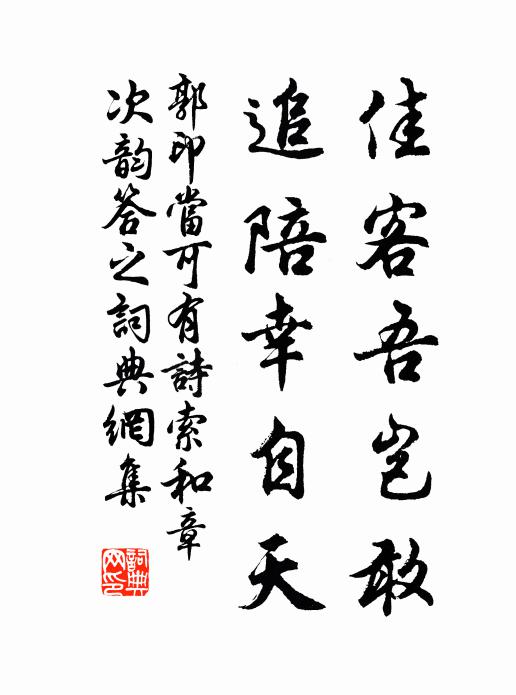 佳客吾豈敢
追陪幸自天
郭印當可有詩索和章
次韵答之詞典網集
詞典網印